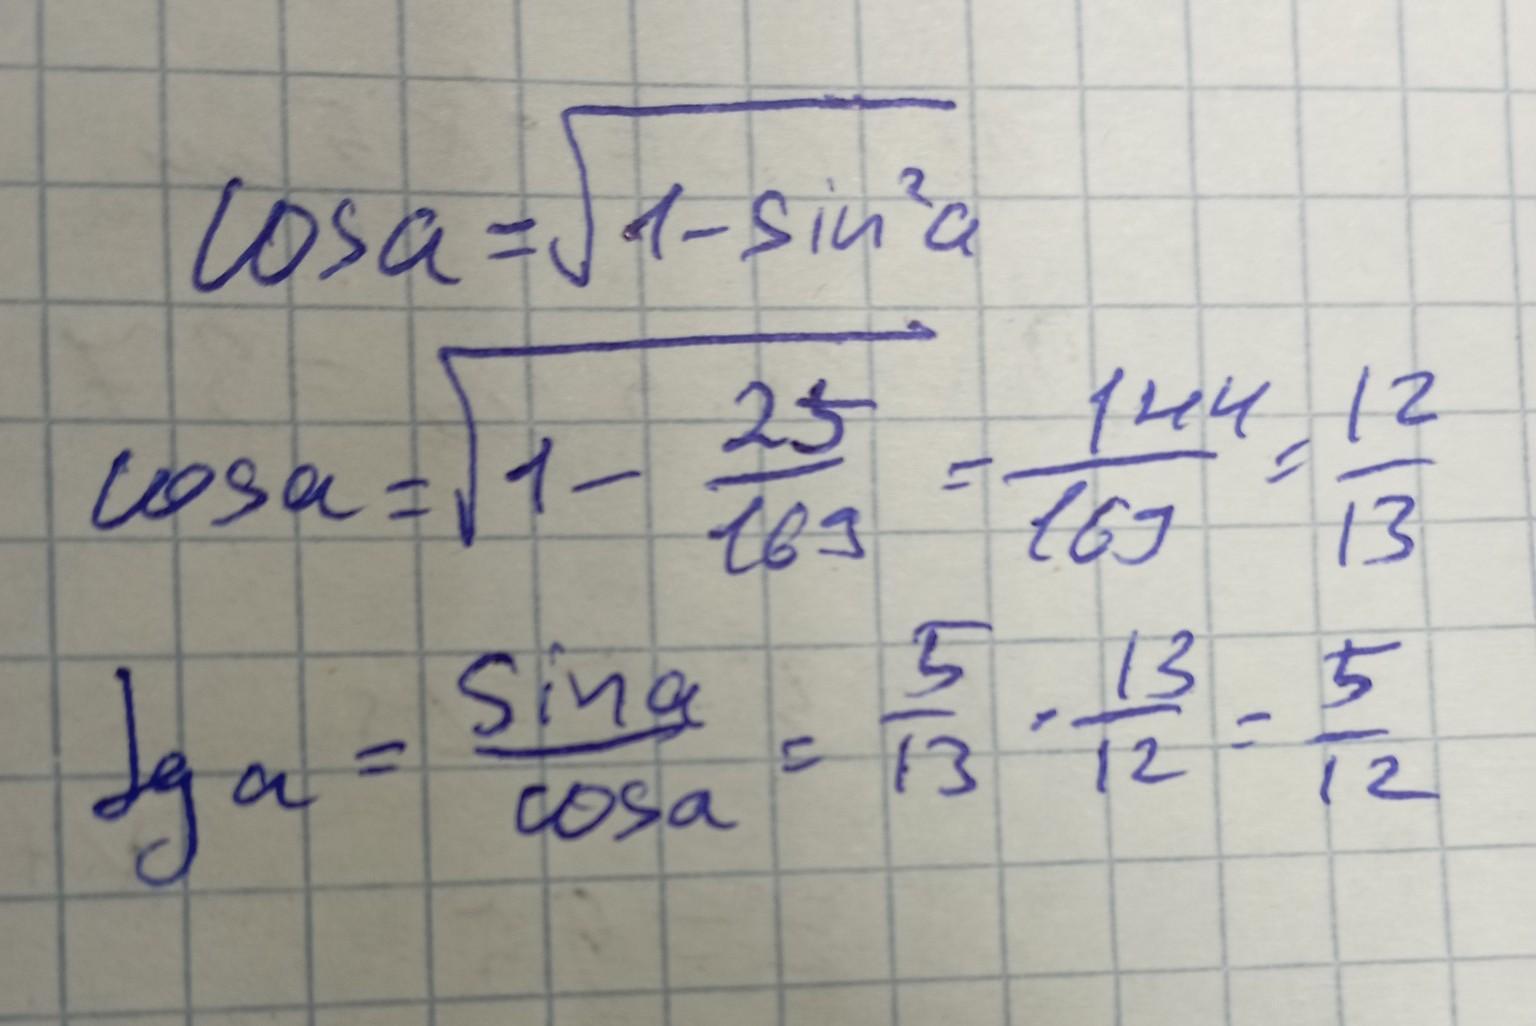 cosa = √1 - sin²a
cosa = √1 - 25/169 = 144/169 = 12/13
tg a = sina/cosa = 5/13 · 13/12 = 5/12